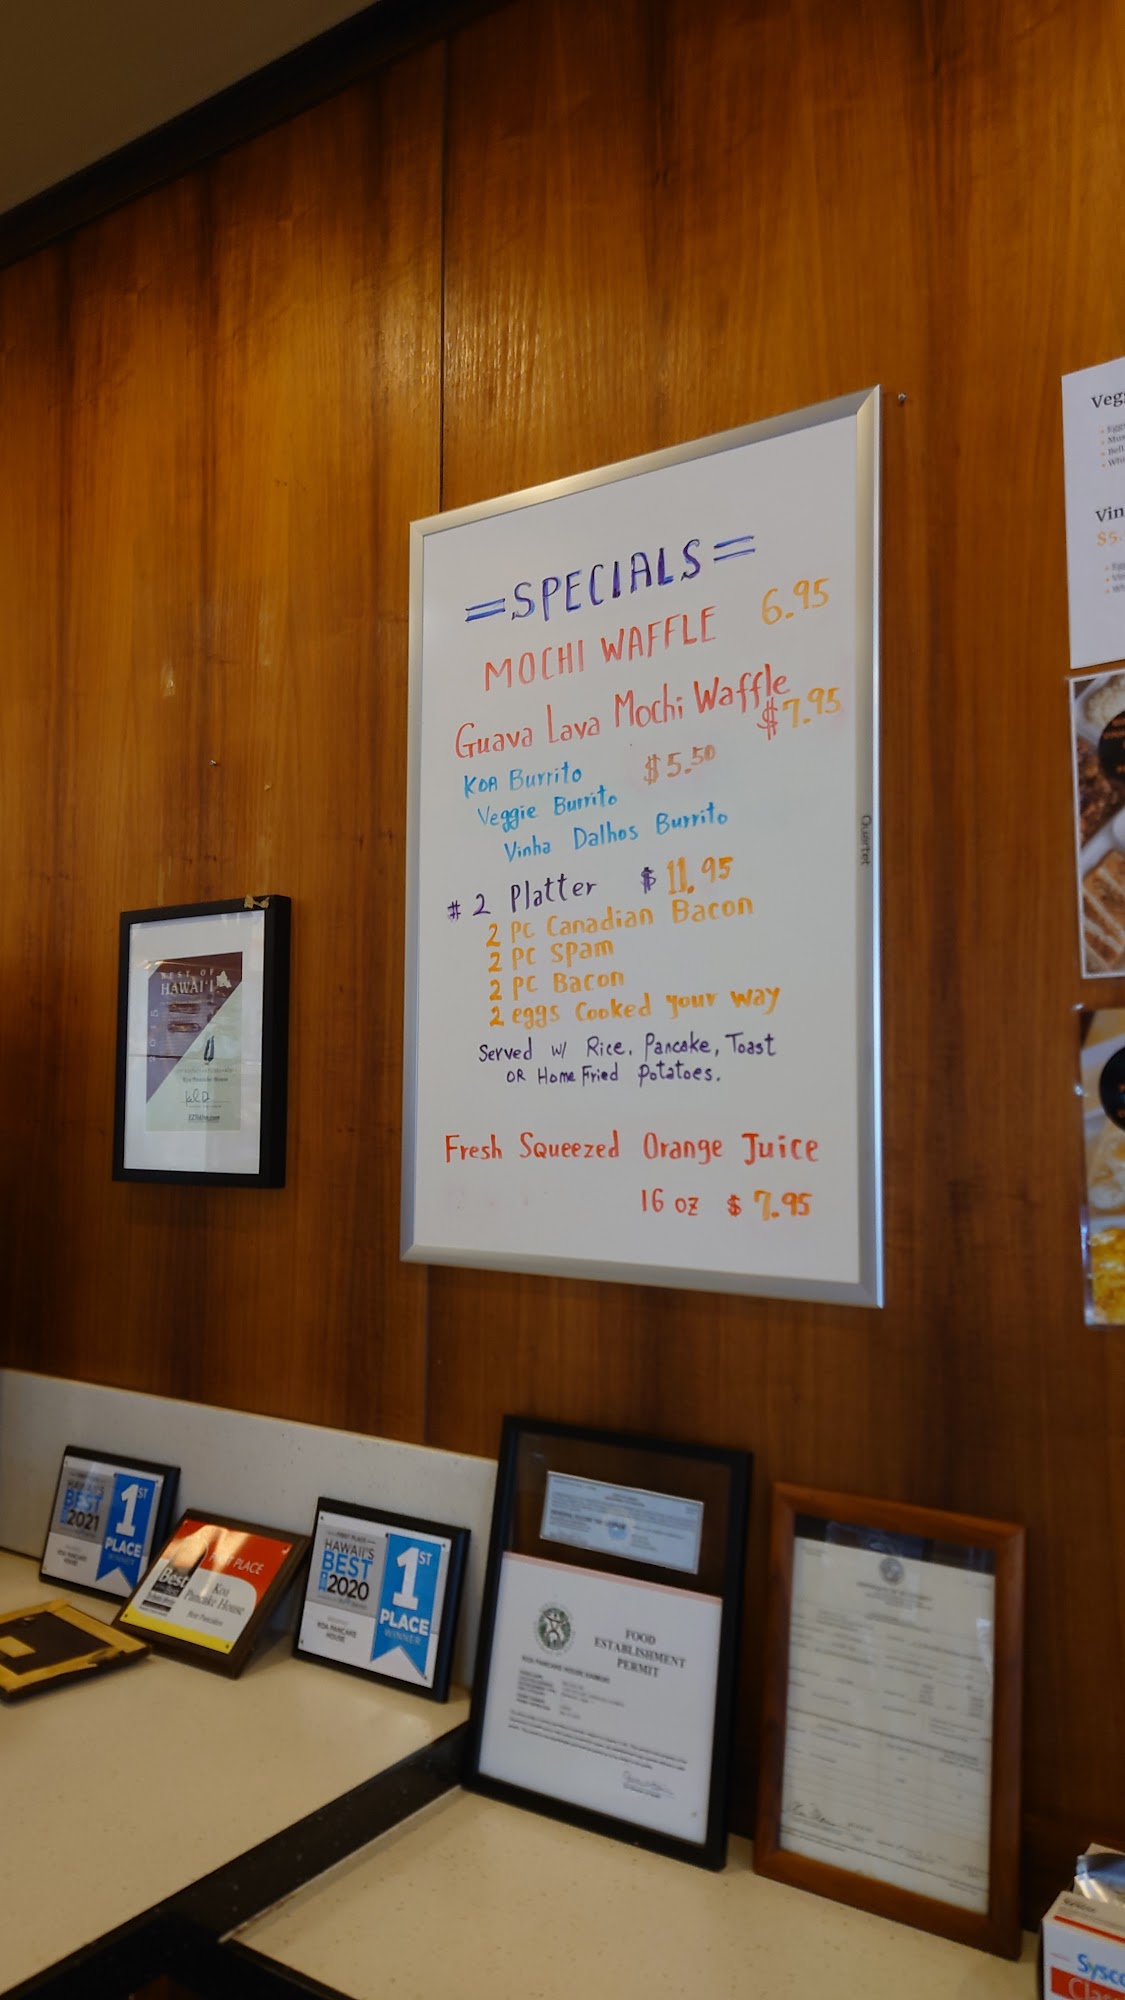 =SPECIALS=
MOCHI WAFFLE 6.95
Guava Lava Mochi Waffle
$7.95
KOA Burrito $5.50
Veggie Burrito
Vinha Dalhos Burrito
# 2 Platter $ 11.95
2 PC Canadian Bacon
2 PC SPam
2 PC Bacon
2 eggs Cooked your way
Served w/ Rice, Pancake, Toast
OR Home Fried Potatoes.
Fresh Squeezed Orange Juice
16 oz $ 7.95
Quartet
Vin
$5.
BEST OF
HAWAI'I
2015
Koa Pancake House
HAWAII'S
BEST
2021
1ST
PLACE
WINNER
KOA PANCAKE
HOUSE
FIRST PLACE
Best
Koa
Pancake House
Best Pancakes
FIRST PLACE
HAWAII'S
BEST
2020
1ST
PLACE
WINNER
KOA PANCAKE
HOUSE
FOOD
ESTABLISHMENT
PERMIT
KOA PANCAKE HOUSE
Sysco
Clas